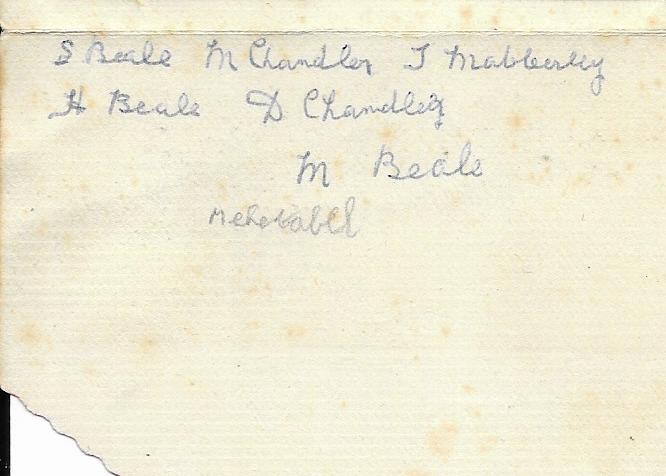 S Beale M Chandler J Mabberley
H Beale D Chandler
M Beale
Mehetabel